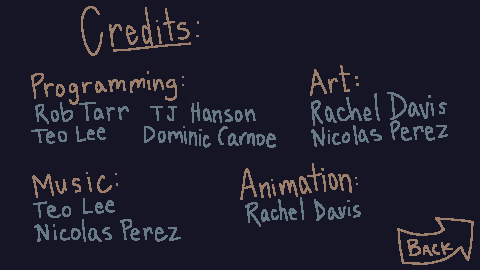 Credits:
Programming:
Rob Tarr TJ Hanson
Teo Lee Dominic Carnoe
Art:
Rachel Davis
Nicolas Perez
Music:
Teo Lee
Nicolas Perez
Animation:
Rachel Davis
BACK